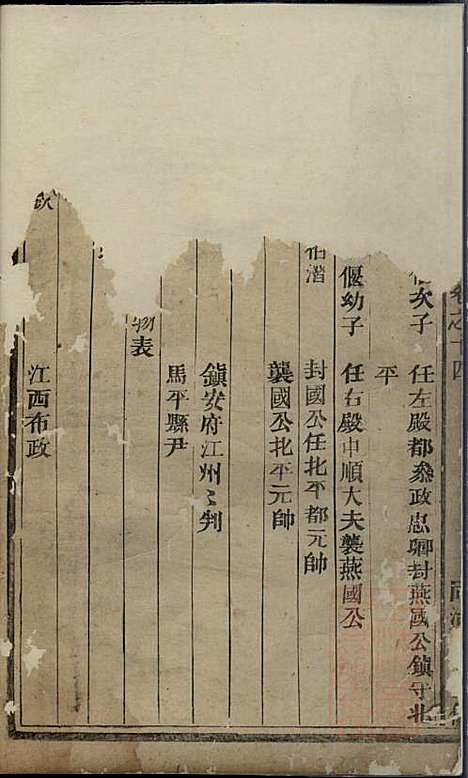 卷之十四
次子 任左殿都叅政忠卿封燕國公鎮守北
平
偃幼子 任右殿中順大夫襲燕國公
伯潛 封國公任北平都元帥
襲國公北平元帥
鎮安府江州〻判
馬平縣尹
物表
江西布政
欽